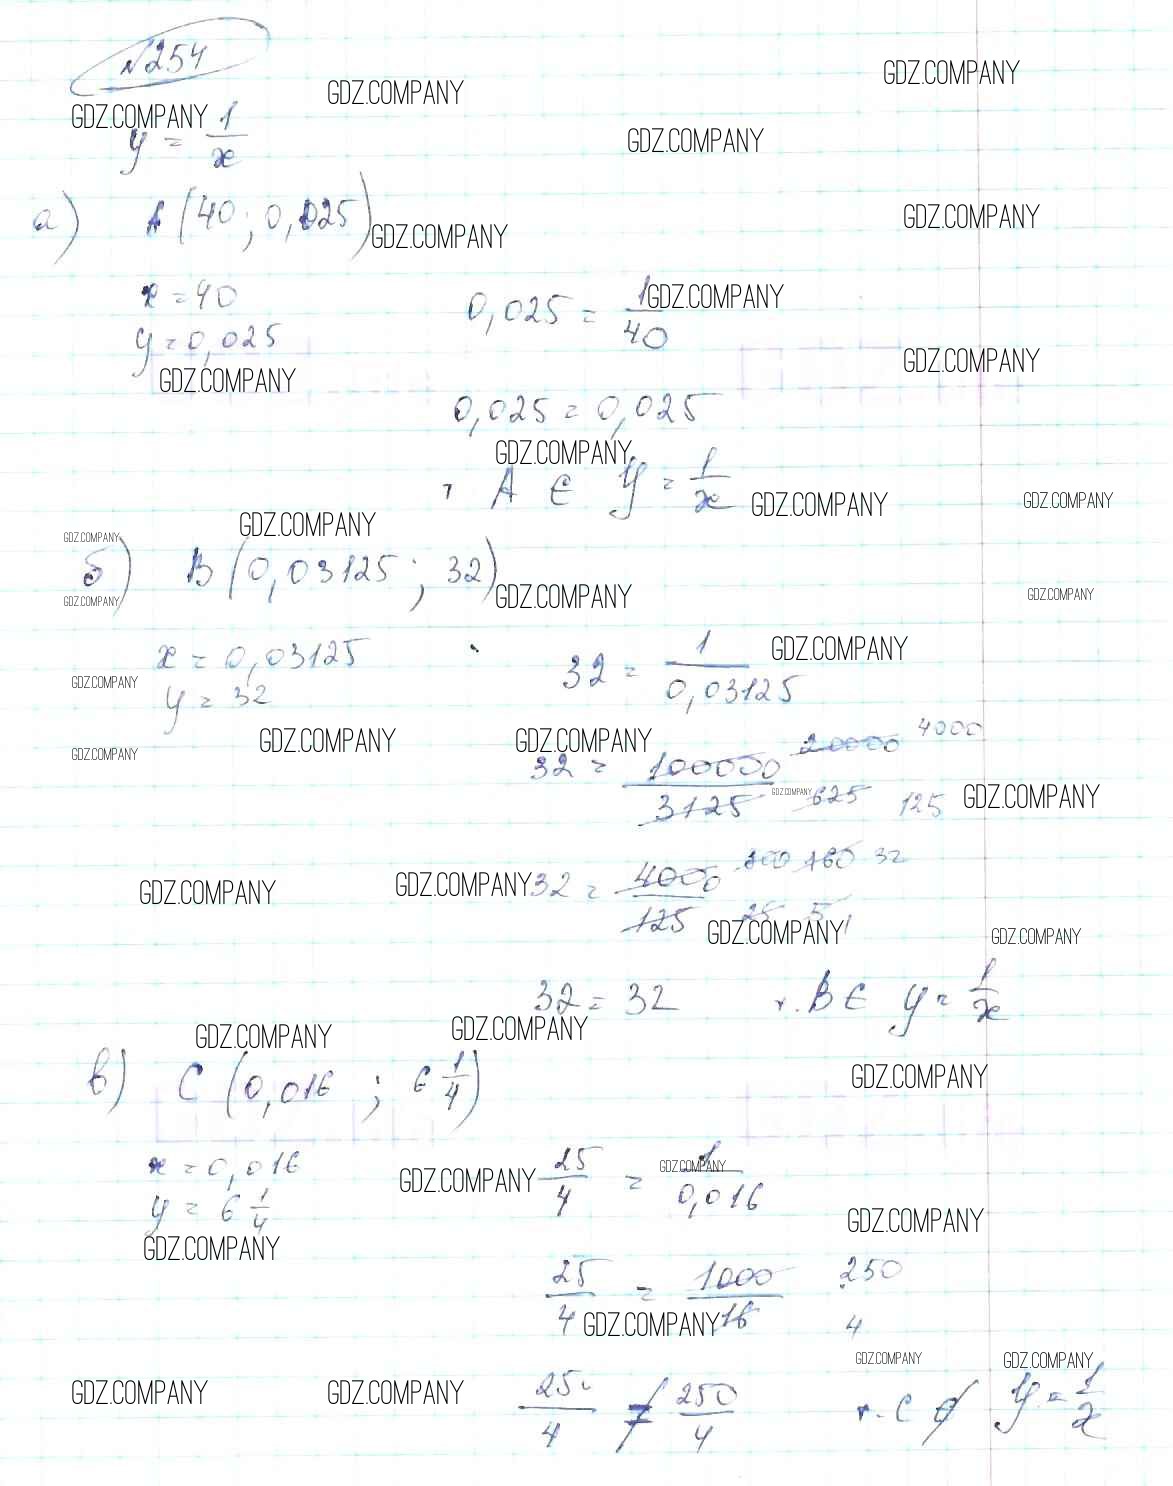 №254
GDZ.COMPANY GDZ.COMPANY GDZ.COMPANY
y = 1/x GDZ.COMPANY
а) A (40; 0,025) GDZ.COMPANY GDZ.COMPANY
x = 40 0,025 = 1/40 GDZ.COMPANY
y = 0,025
GDZ.COMPANY GDZ.COMPANY
0,025 = 0,025
GDZ.COMPANY
т A ∈ y = 1/x GDZ.COMPANY GDZ.COMPANY
GDZ.COMPANY GDZ.COMPANY
б) B (0,03125; 32) GDZ.COMPANY GDZ.COMPANY
GDZ.COMPANY
x = 0,03125 32 = 1/0,03125 GDZ.COMPANY
GDZ.COMPANY y = 32
GDZ.COMPANY GDZ.COMPANY GDZ.COMPANY
32 = 100000/3125 20000/625 4000/125 GDZ.COMPANY GDZ.COMPANY
GDZ.COMPANY GDZ.COMPANY 32 = 4000/125 800/25 160/5 32/1
GDZ.COMPANY GDZ.COMPANY
32 = 32 т. B ∈ y = 1/x
GDZ.COMPANY GDZ.COMPANY
в) C (0,016; 6 1/4) GDZ.COMPANY
x = 0,016 GDZ.COMPANY 25/4 = 1/0,016 GDZ.COMPANY
y = 6 1/4 GDZ.COMPANY
GDZ.COMPANY
25/4 = 1000/16 250/4
GDZ.COMPANY
GDZ.COMPANY GDZ.COMPANY
GDZ.COMPANY GDZ.COMPANY 25/4 ≠ 250/4 т. C ∉ y = 1/x